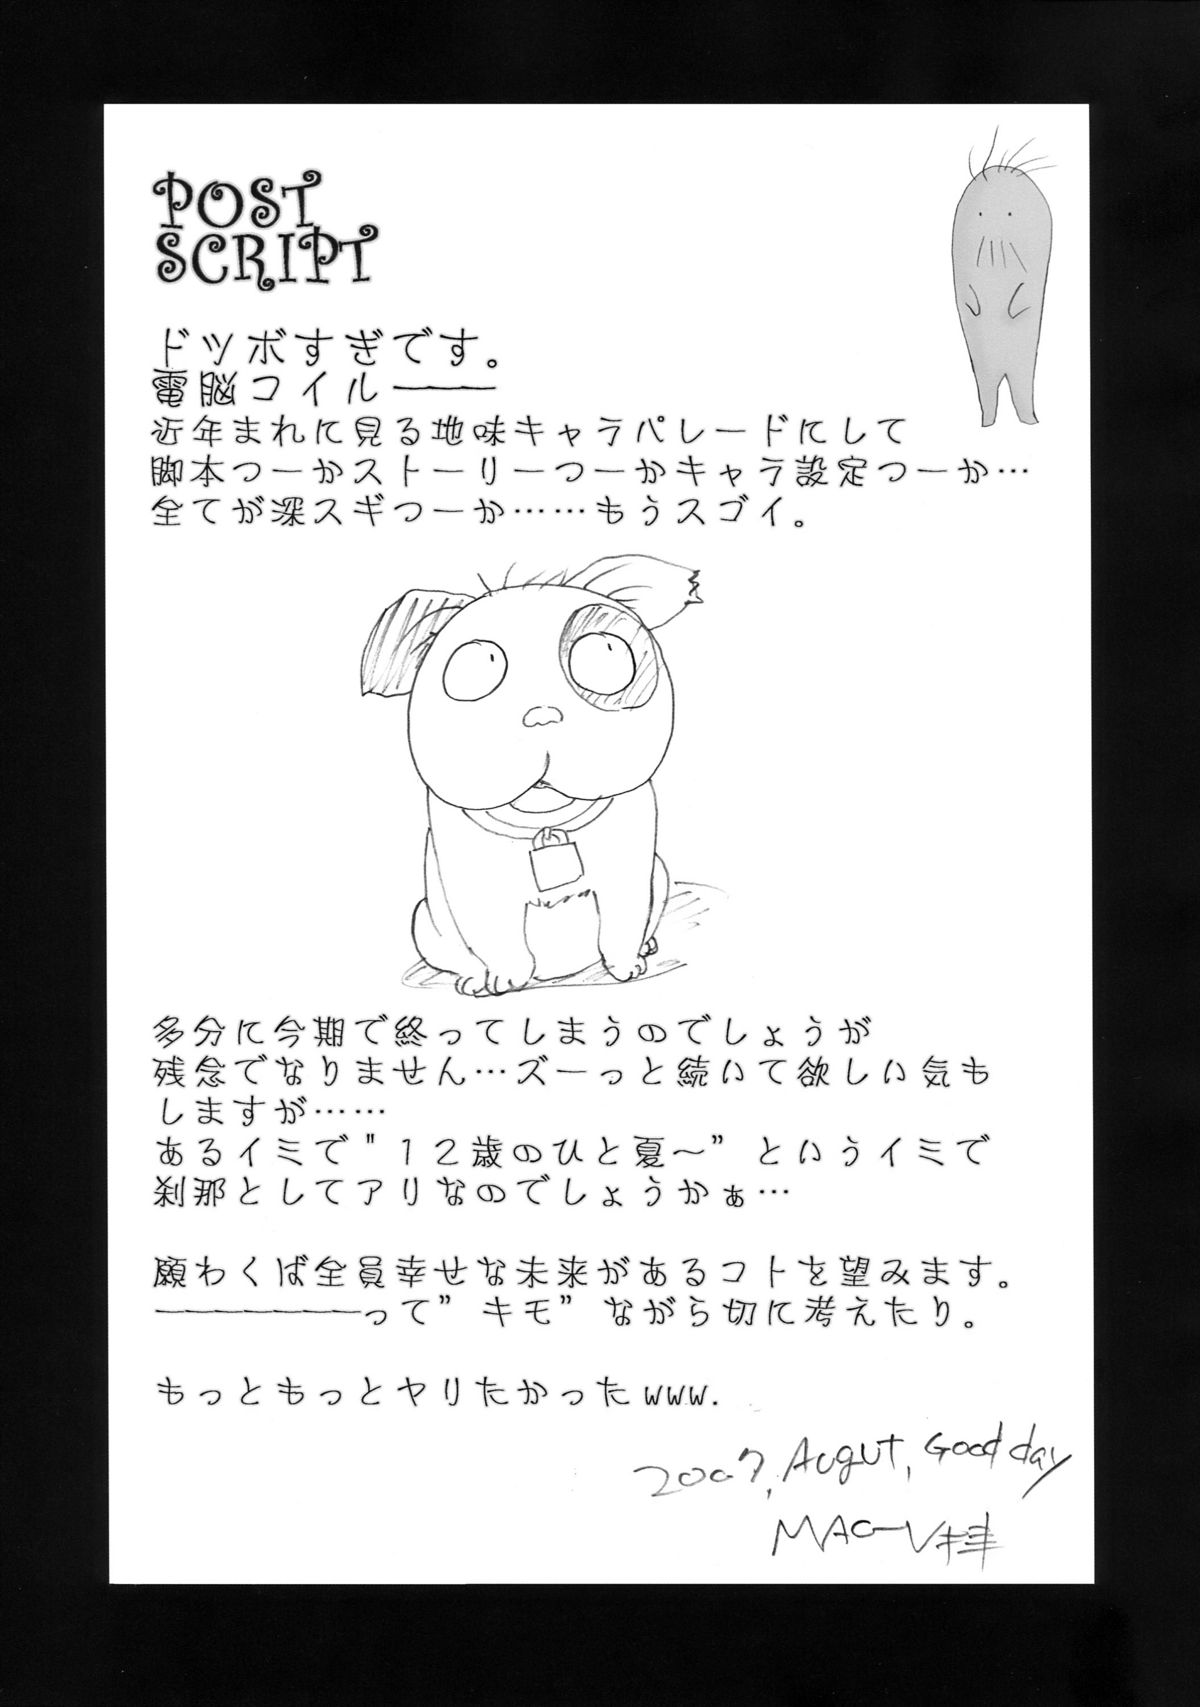 POST
SCRIPT
ドツボすぎです。
電脳コイル―――
近年まれに見る地味キャラパレードにして
脚本つーかストーリーつーかキャラ設定つーか…
全てが深スギつーか……もうスゴイ。
多分に今期で終ってしまうのでしょうが
残念でなりません…ズーっと続いて欲しい気も
しますが……
あるイミで"12歳のひと夏～"というイミで
刹那としてアリなのでしょうかぁ…
願わくば全員幸せな未来があるコトを望みます。
―――――――って"キモ"ながら切に考えたり。
もっともっとヤリたかったwww.
2007, Augut, Good day
MAC-V拝